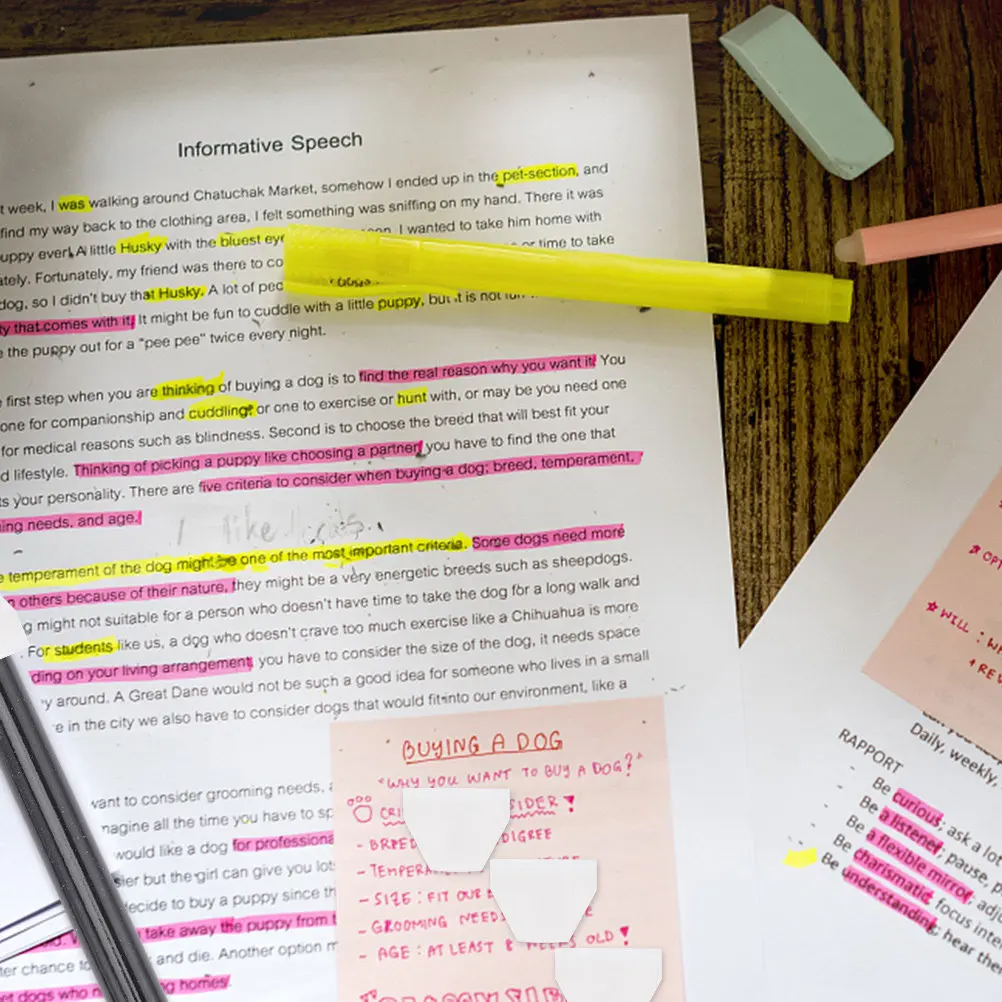 Informative Speech
t week, I was walking around Chatuchak Market, somehow I ended up in the pet-section, and
find my way back to the clothing area, I felt something was sniffing on my hand. There it was
uppy ever! A little Husky with the bluest eye I wanted to take him home with
ately. Fortunately, my friend was there to co or time to take
dog, so I didn't buy that Husky. A lot of peo dogs
ty that comes with it. It might be fun to cuddle with a little puppy, but it is not fun
e the puppy out for a "pee pee" twice every night.
e first step when you are thinking of buying a dog is to find the real reason why you want it. You
one for companionship and cuddling, or one to exercise or hunt with, or may be you need one
for medical reasons such as blindness. Second is to choose the breed that will best fit your
d lifestyle. Thinking of picking a puppy like choosing a partner, you have to find the one that
ts your personality. There are five criteria to consider when buying a dog; breed, temperament,
ing needs, and age.
I like
e temperament of the dog might be one of the most important criteria. Some dogs need more
n others because of their nature, they might be a very energetic breeds such as sheepdogs.
g might not suitable for a person who doesn't have time to take the dog for a long walk and
. For students like us, a dog who doesn't crave too much exercise like a Chihuahua is more
ding on your living arrangement, you have to consider the size of the dog, it needs space
y around. A Great Dane would not be such a good idea for someone who lives in a small
e in the city we also have to consider dogs that would fit into our environment, like a
vant to consider grooming needs,
nagine all the time you have to sp
would like a dog for professiona
sier but the girl can give you lot
decide to buy a puppy since th
take away the puppy from t
and die. Another option m
ter chance to
et dogs who n ng homes.
BUYING A DOG
"WHY YOU WANT TO BUY A DOG?"
CRI SIDER!
- BREED DIGREE
- TEMPERA TURE
- SIZE : FIT OUR
- GROOMING NEEDS
- AGE : AT LEAST 8 WEEKS OLD!
OPT
WILL : WH
+ REV
Daily, weekly,
RAPPORT
- Be curious; ask a lo
- Be a listener; pause, p
- Be a flexible mirror; adj
- Be charismatic; focus inte
- Be understanding; hear the